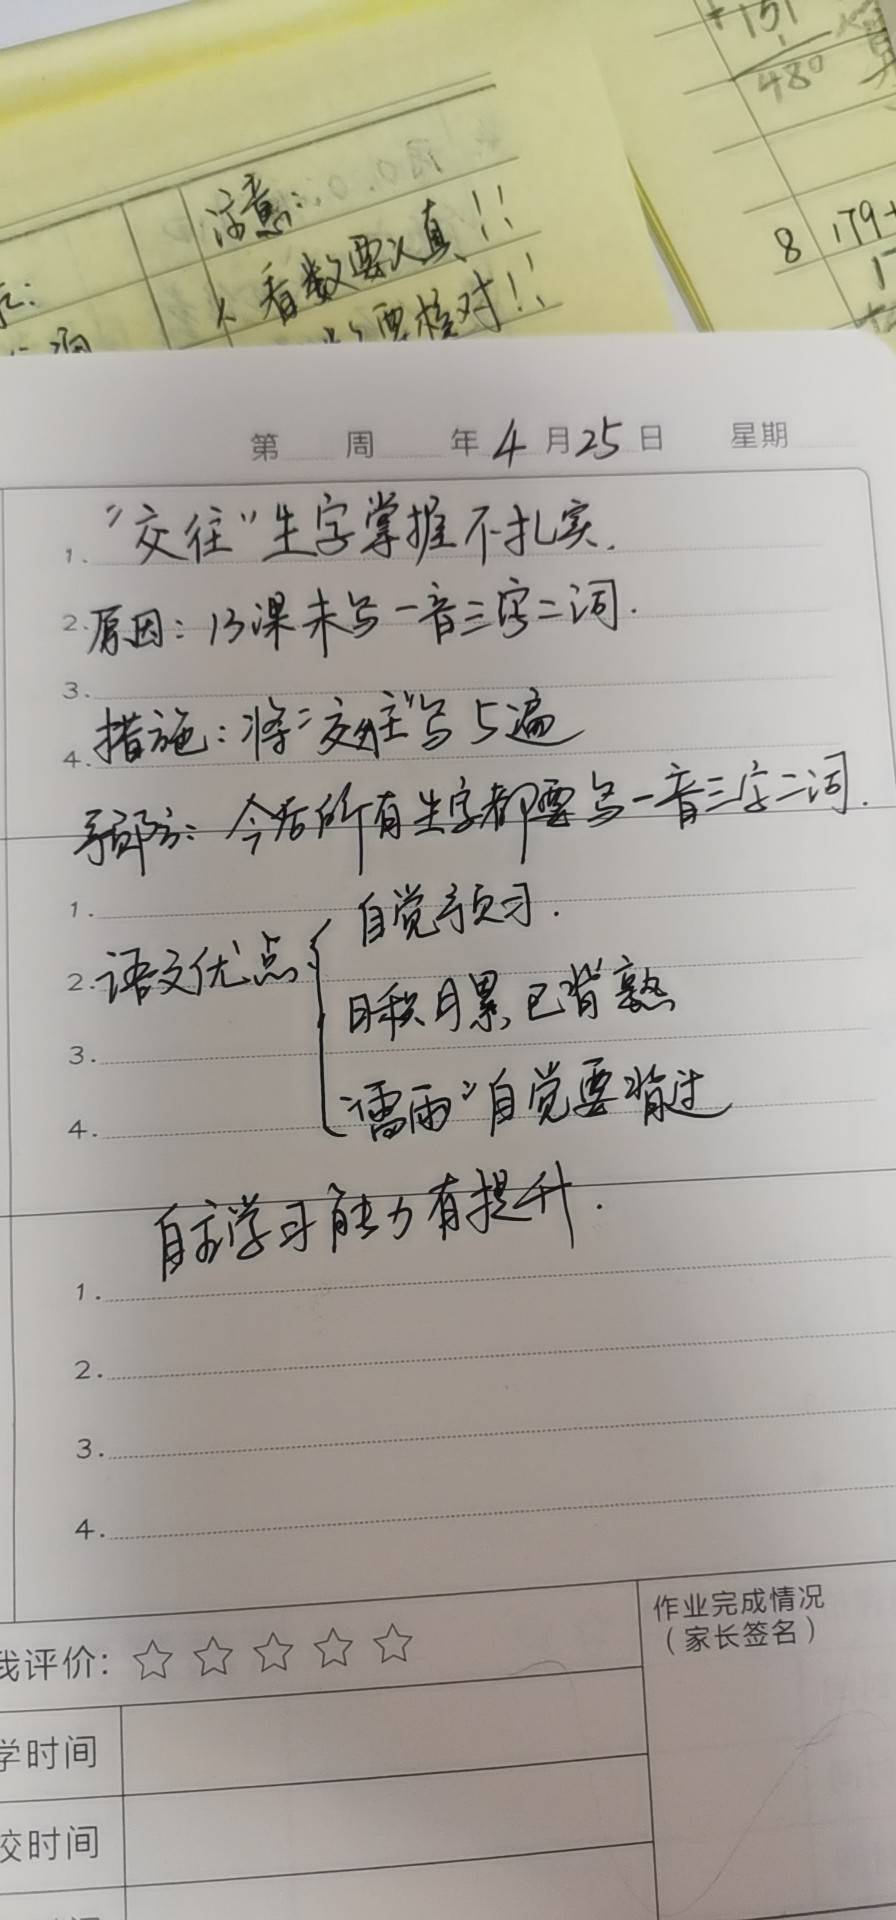 +151
480
注意:
1、看数要认真!!
要核对!!
8 179+
第 周 年4月25日 星期
1. "交往"生字掌握不扎实.
2. 原因: 13课未写一音三字二词.
3.
4. 措施: 将"交往"写5遍
预防: 今后所有生字都要写一音三字二词.
1. 自觉预习.
2. 语文优点
日积月累已背熟
3.
"雷雨"自觉要背过
4.
自主学习能力有提升.
1.
2.
3.
4.
我评价: ☆ ☆ ☆ ☆ ☆
作业完成情况
(家长签名)
学时间
校时间